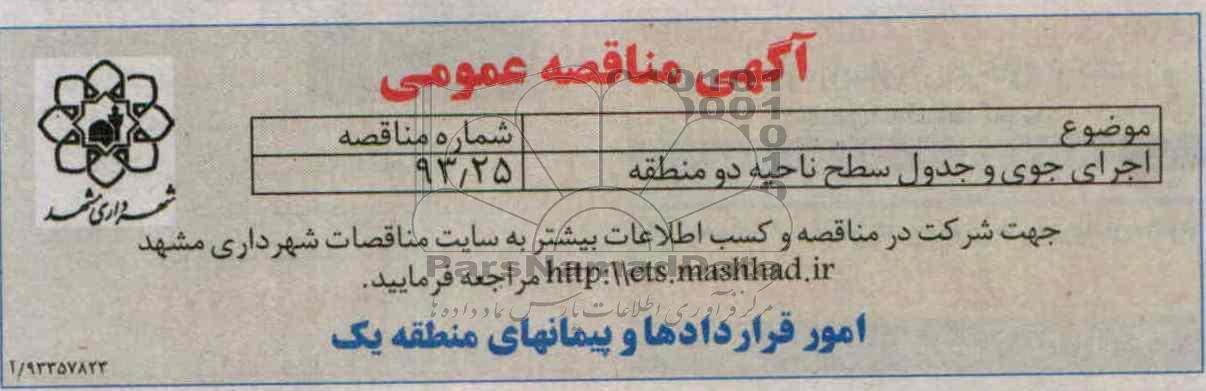 آگهی مناقصه عمومی
موضوع شماره مناقصه
اجرای جوی و جدول سطح ناحیه دو منطقه ۹۳٫۲۵
شهرداری مشهد
جهت شرکت در مناقصه و کسب اطلاعات بیشتر به سایت مناقصات شهرداری مشهد
http:\\ets.mashhad.ir مراجعه فرمایید.
ParsNamadData
مرکز فرآوری اطلاعات پارس نماد داده ها
امور قراردادها و پیمانهای منطقه یک
۹۳۳۵۷۸۲۳/آ